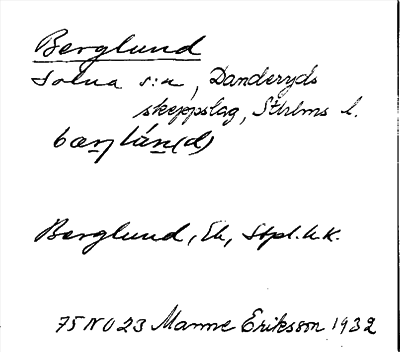 Berglund
Solna s:n, Danderyds
skeppslag, Sthlms l.
bærjlún(d)
Berglund, Eh, Stpl.u.k.
75 NO 23 Manne Eriksson 1932